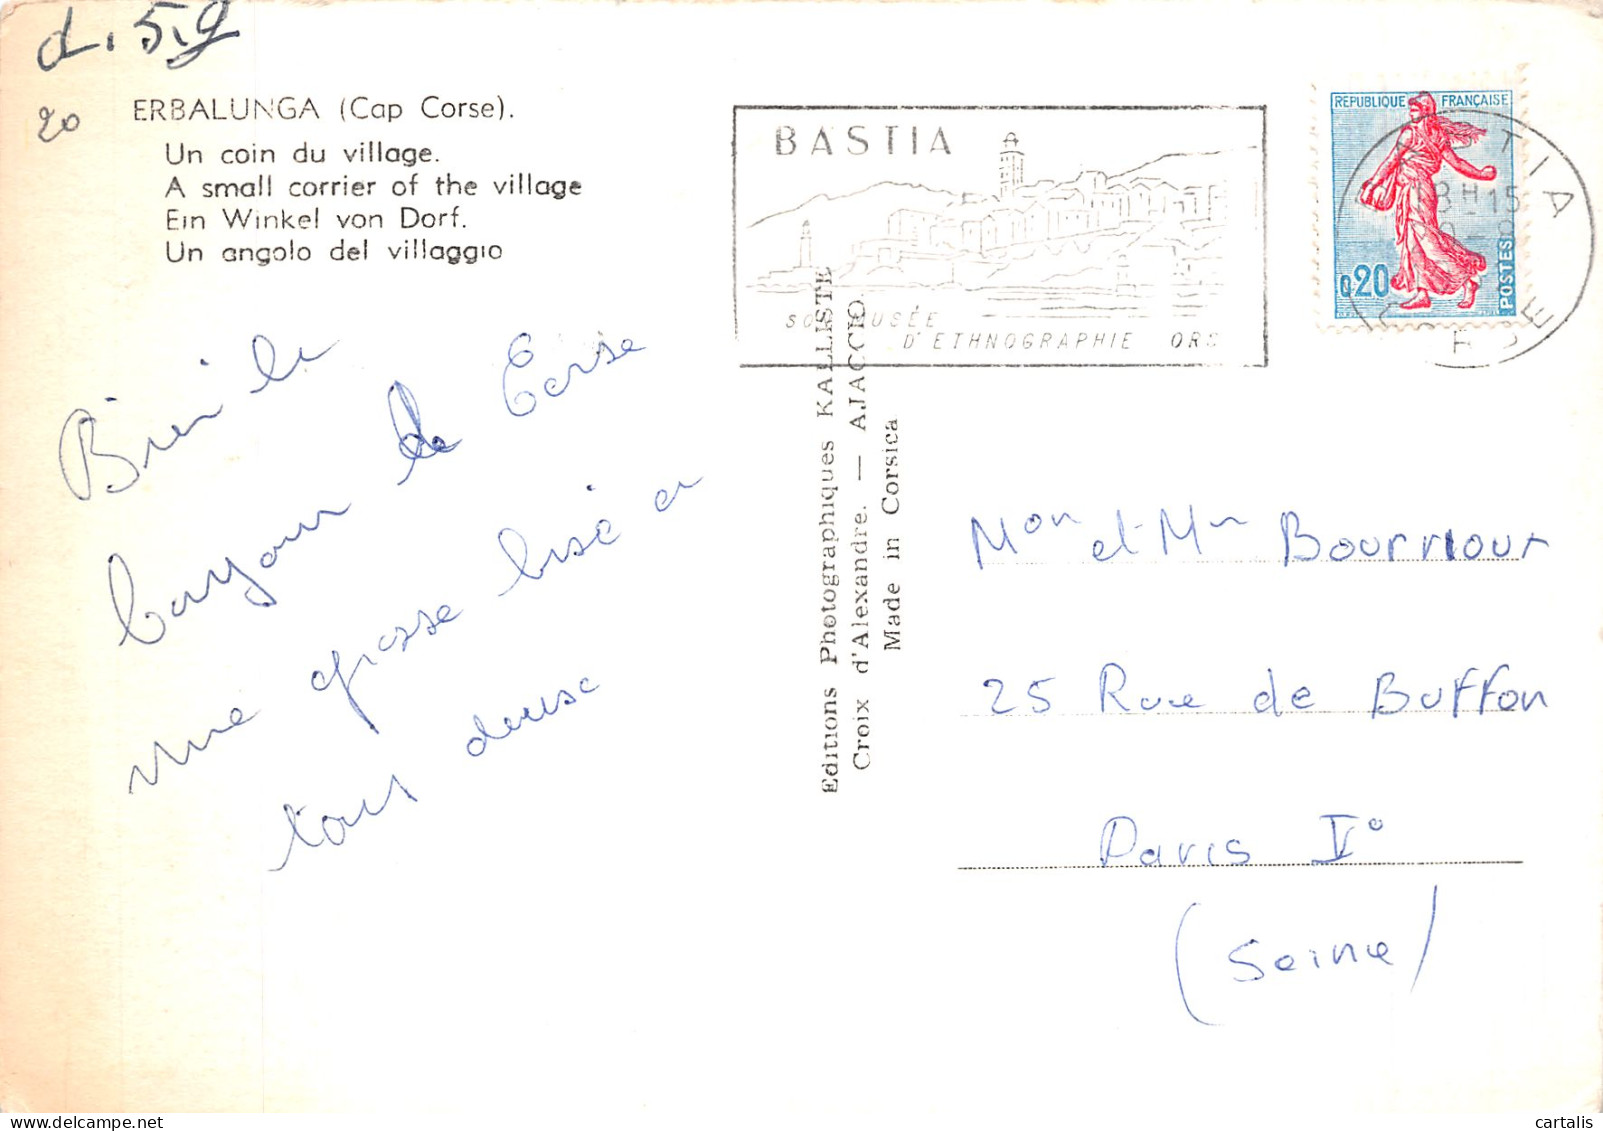 d. 5.9
20
ERBALUNGA (Cap Corse).
Un coin du village.
A small corrier of the village
Ein Winkel von Dorf.
Un angolo del villaggio
Bien le
bonjour de Corse
une grosse bise a
tous deuse
Editions Photographiques KALLISTE
Croix d'Alexandre. — AJACCIO.
Made in Corsica
BASTIA
SON MUSÉE
D'ETHNOGRAPHIE CORSE
REPUBLIQUE FRANÇAISE
0,20
POSTES
BASTIA
18H15
CORSE
Mon et Mm Bournour
25 Rue de Buffon
Paris V°
(Seine)
cartalis delcampe.net